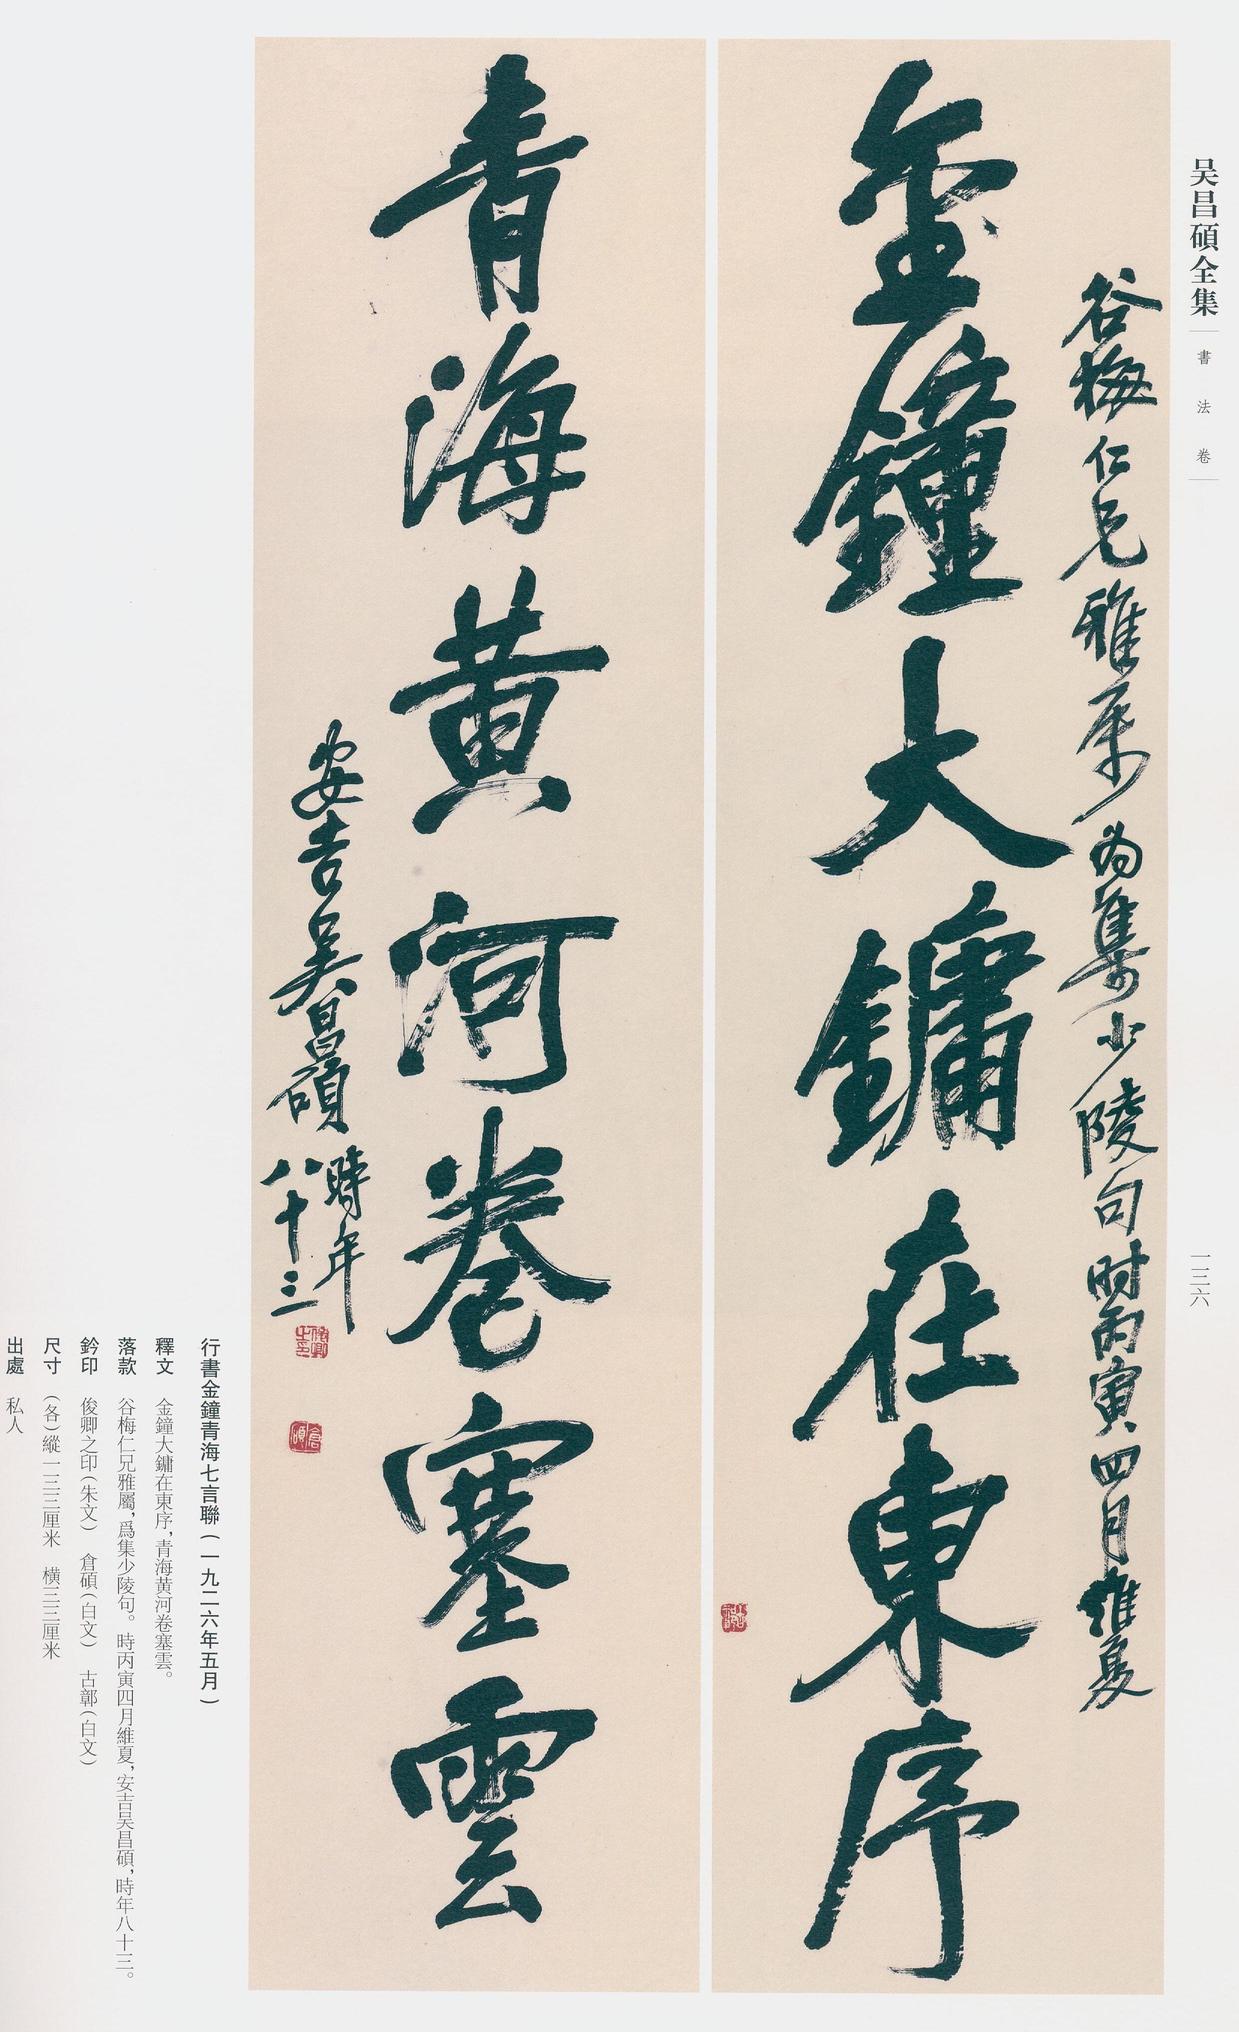 吴昌碩全集
書法卷
一三六
谷梅仁兄雅屬為集少陵句时丙寅四月維夏
金鐘大鏞在東序
青海黄河卷塞雲
安吉吴昌碩
時年
八十三
俊卿之印
倉碩
行書金鐘青海七言聯(一九二六年五月)
釋文 金鐘大鏞在東序,青海黄河卷塞雲。
落款 谷梅仁兄雅屬,爲集少陵句。時丙寅四月維夏,安吉吴昌碩,時年八十三。
鈐印 俊卿之印(朱文) 倉碩(白文) 古鄣(白文)
尺寸 (各)縱一三三厘米 橫三三厘米
出處 私人